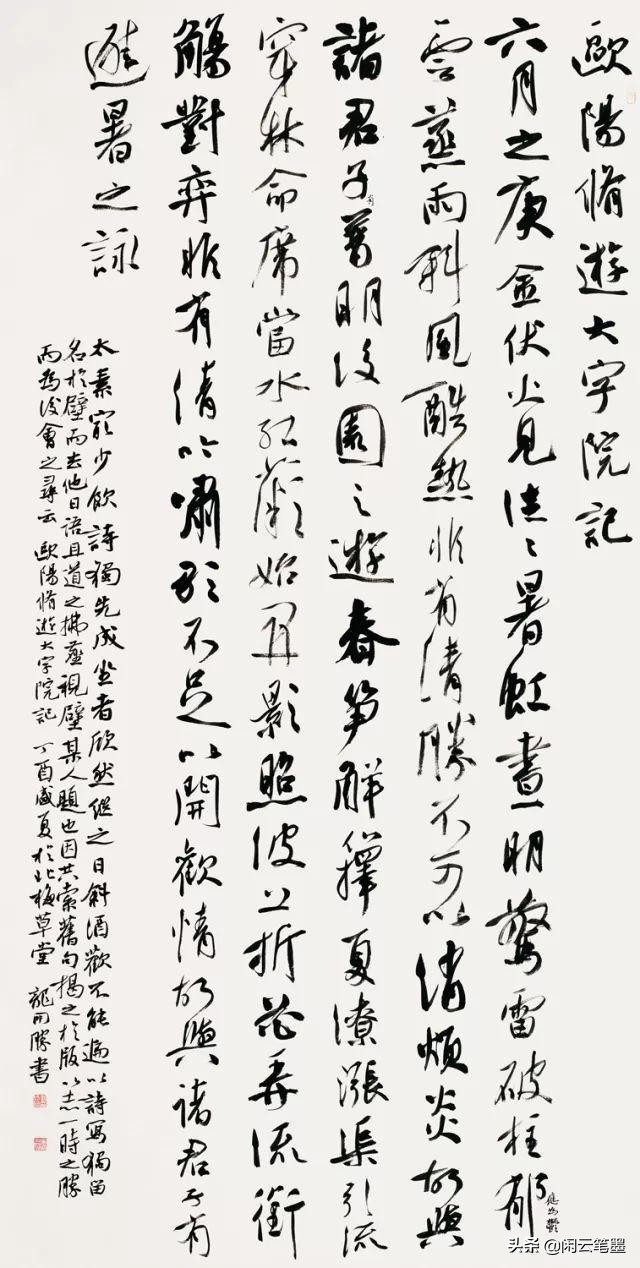 歐陽脩遊大字院記
六月之庚金伏火見往〻暑虹晝明驚雷破柱郁
應為鬱
雲蒸雨斜風酷熱非有清勝不可以消煩炎故與
諸君子有普明後園之遊春笋解籜夏潦漲渠引流
穿林命席當水紅薇始開影照波上折花弄流銜
觴對弈非有清吟嘯歌不足以開歡情故與諸君子有
避暑之詠
太素最少飲詩獨先成坐者欣然繼之日斜酒歡不能遍以詩寫獨留
名於壁而去他日語且道之拂塵視壁某人題也因共索舊句揭之於版以志一時之勝
而為後會之尋云 歐陽脩遊大字院記 丁酉盛夏於北梅草堂 龍開勝書
头条 @闲云笔墨